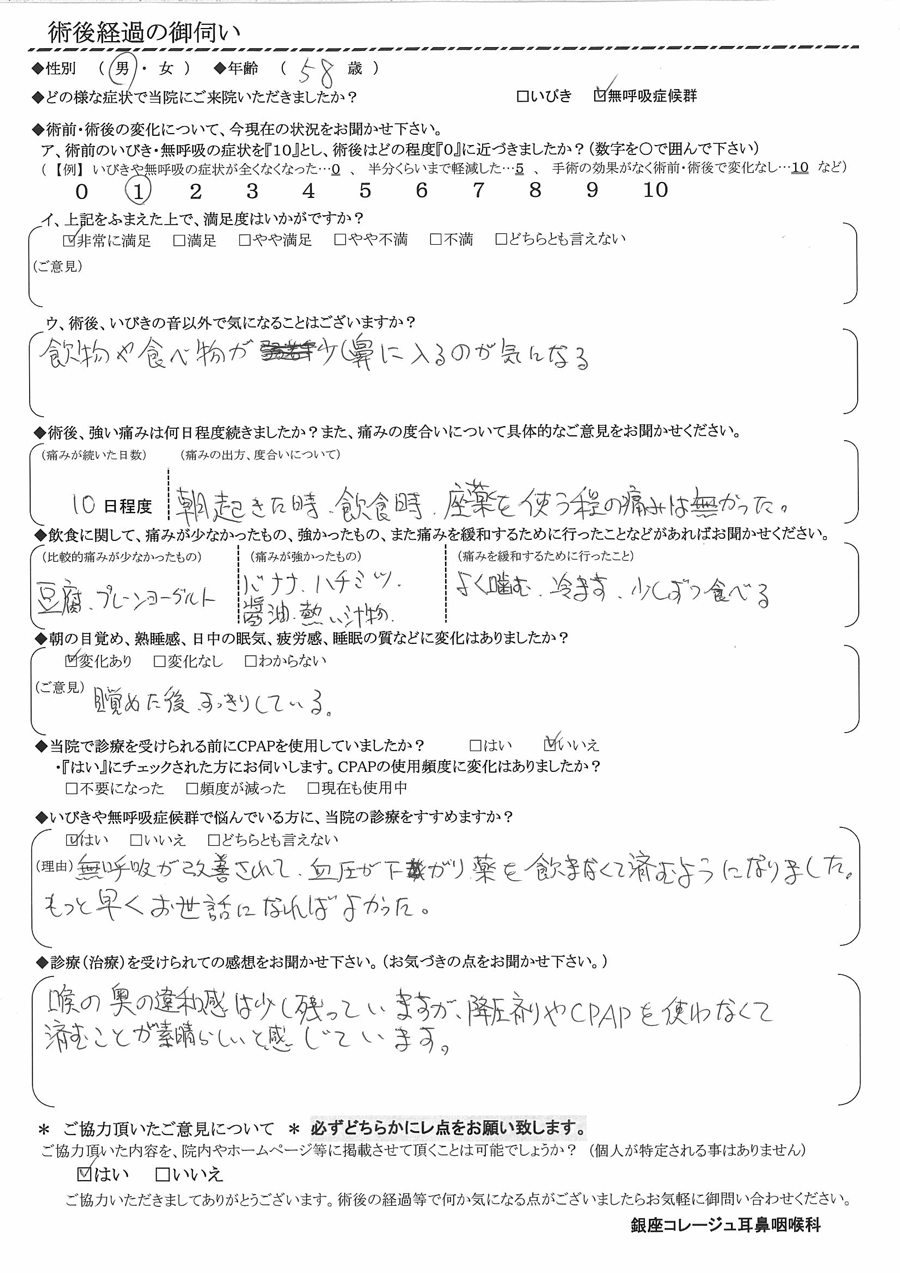 術後経過の御伺い
◆性別 （ 男 ・ 女 ） ◆年齢 （ 58 歳 ）
◆どの様な症状で当院にご来院いただきましたか？ □いびき ☑無呼吸症候群
◆術前・術後の変化について、今現在の状況をお聞かせ下さい。
ア、術前のいびき・無呼吸の症状を『10』とし、術後はどの程度『0』に近づきましたか？（数字を○で囲んで下さい）
（【例】 いびきや無呼吸の症状が全くなくなった…0 、 半分くらいまで軽減した…5 、 手術の効果がなく術前・術後で変化なし…10 など）
0 1 2 3 4 5 6 7 8 9 10
イ、上記をふまえた上で、満足度はいかがですか？
☑非常に満足 □満足 □やや満足 □やや不満 □不満 □どちらとも言えない
（ご意見）
ウ、術後、いびきの音以外で気になることはございますか？
飲物や食べ物が少し鼻に入るのが気になる
◆術後、強い痛みは何日程度続きましたか？また、痛みの度合いについて具体的なご意見をお聞かせください。
（痛みが続いた日数） （痛みの出方、度合いについて）
10 日程度 朝起きた時、飲食時、座薬を使う程の痛みは無かった。
◆飲食に関して、痛みが少なかったもの、強かったもの、また痛みを緩和するために行ったことなどがあればお聞かせください。
（比較的痛みが少なかったもの） （痛みが強かったもの） （痛みを緩和するために行ったこと）
豆腐、プレーンヨーグルト バナナ、ハチミツ、 よく噛む、冷ます、少しずつ食べる
醤油、熱い汁物、
◆朝の目覚め、熟睡感、日中の眠気、疲労感、睡眠の質などに変化はありましたか？
☑変化あり □変化なし □わからない
（ご意見） 目覚めた後すっきりしている。
◆当院で診療を受けられる前にCPAPを使用していましたか？ □はい ☑いいえ
・『はい』にチェックされた方にお伺いします。CPAPの使用頻度に変化はありましたか？
□不要になった □頻度が減った □現在も使用中
◆いびきや無呼吸症候群で悩んでいる方に、当院の診療をすすめますか？
☑はい □いいえ □どちらとも言えない
（理由） 無呼吸が改善されて、血圧が下がり薬を飲まなくて済むようになりました。
もっと早くお世話になればよかった。
◆診療（治療）を受けられての感想をお聞かせ下さい。（お気づきの点をお聞かせ下さい。）
喉の奥の違和感は少し残っていますが、降圧剤やCPAPを使わなくて
済むことが素晴らしいと感じています。
＊ ご協力頂いたご意見について ＊ 必ずどちらかにレ点をお願い致します。
ご協力頂いた内容を、院内やホームページ等に掲載させて頂くことは可能でしょうか？ （個人が特定される事はありません）
☑はい □いいえ
ご協力いただきましてありがとうございます。術後の経過等で何か気になる点がございましたらお気軽に御問い合わせください。
銀座コレージュ耳鼻咽喉科